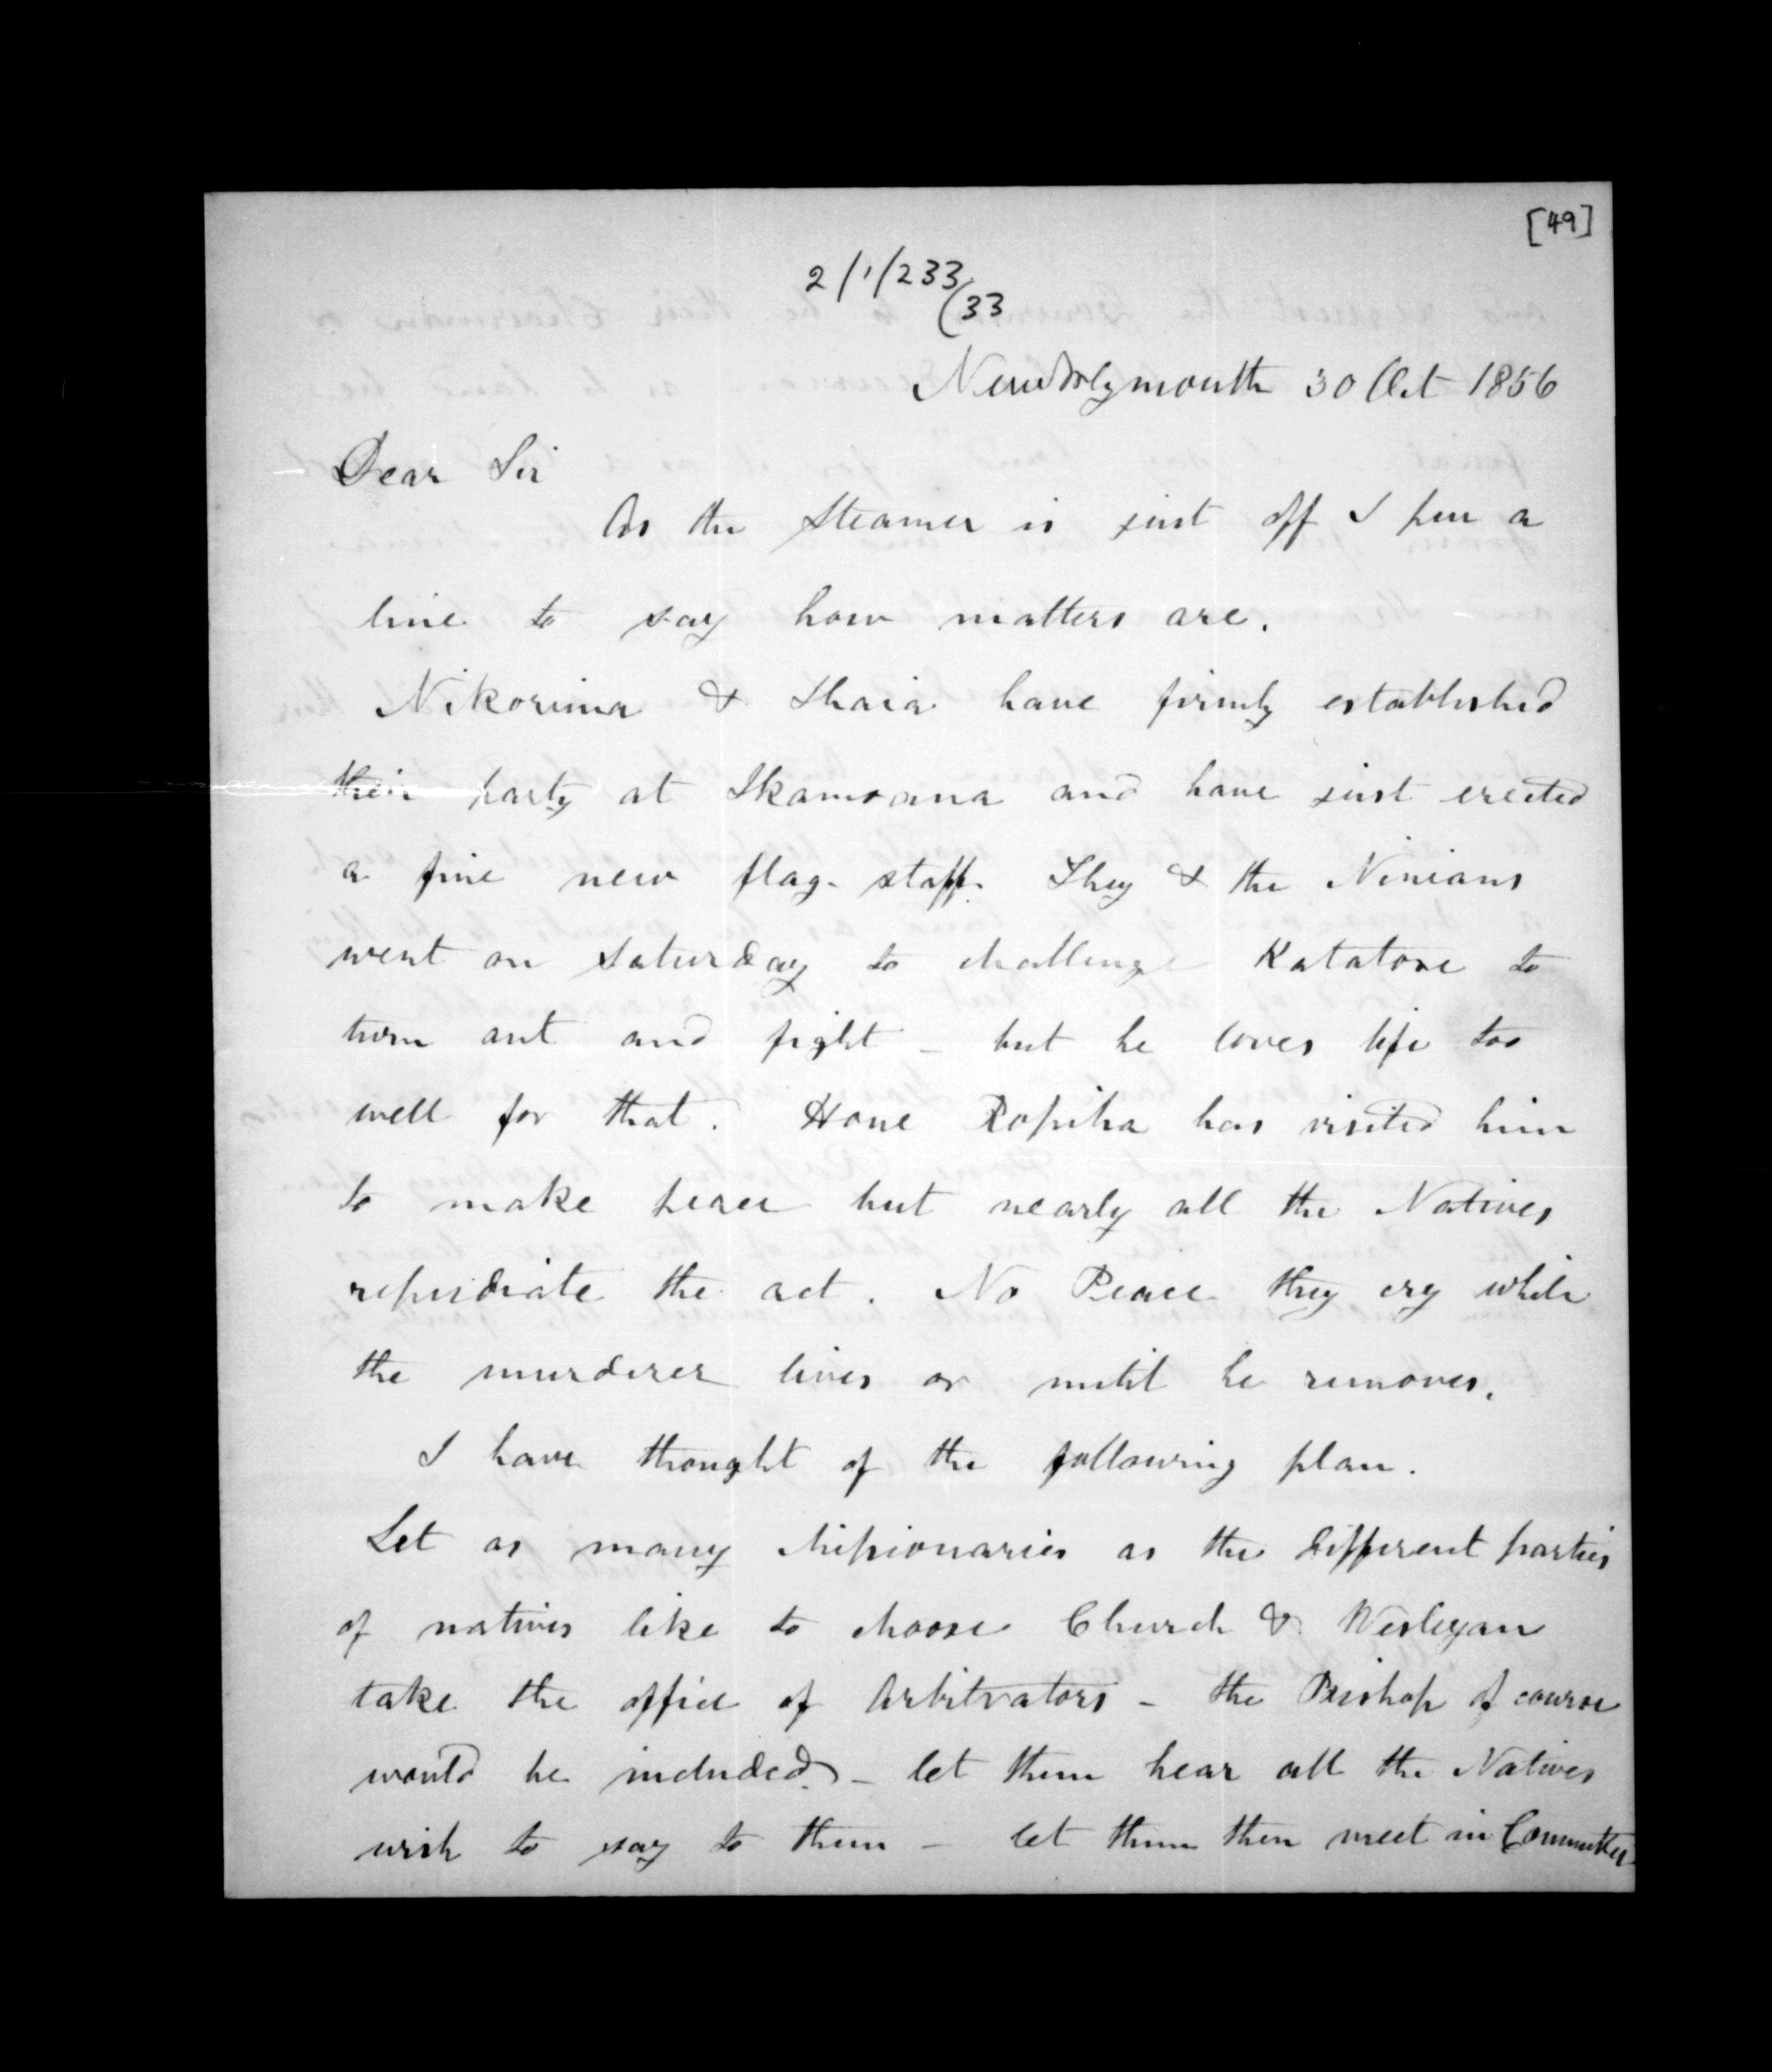 [49]
2/1/233
(33
New Plymouth 30 Oct 1856
Dear Sir
As the Steamer is just off I pen a
line to say how matters are.
Nikorima & Ihaia have firmly established
their party at Ikamoana and have just erected
a fine new flag-staff. They & the Ninians
went on Saturday to challenge Katatore to
turn out and fight - but he loves life too
well for that. Hone Ropiha has visited him
to make peace but nearly all the Natives
repudiate the act. No Peace they cry while
the murderer lives or until he removes.
I have thought of the following plan.
Let as many Missionaries as the different parties
of natives like to choose Church & Wesleyan
take the office of Arbitrators - the Bishop of course
would be included) - let them hear all the Natives
wish to say to them - let them then meet in Committee